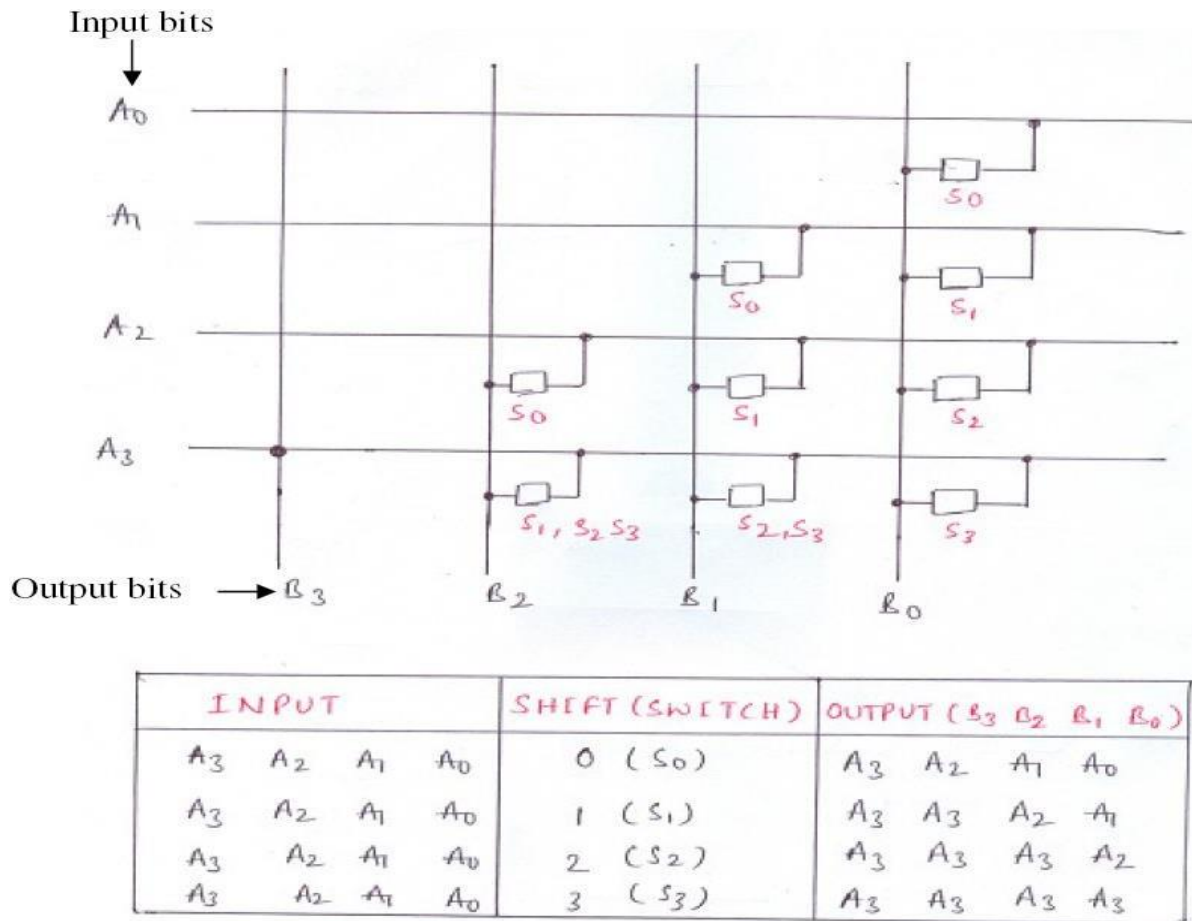 Input bits
A0
S0
A1
S0 S1
A2
S0 S1 S2
A3
S1, S2 S3 S2,S3 S3
Output bits B3 B2 B1 B0
INPUT SHIFT (SWITCH) OUTPUT (B3 B2 B1 B0)
A3 A2 A1 A0 0 (S0) A3 A2 A1 A0
A3 A2 A1 A0 1 (S1) A3 A3 A2 A1
A3 A2 A1 A0 2 (S2) A3 A3 A3 A2
A3 A2 A1 A0 3 (S3) A3 A3 A3 A3